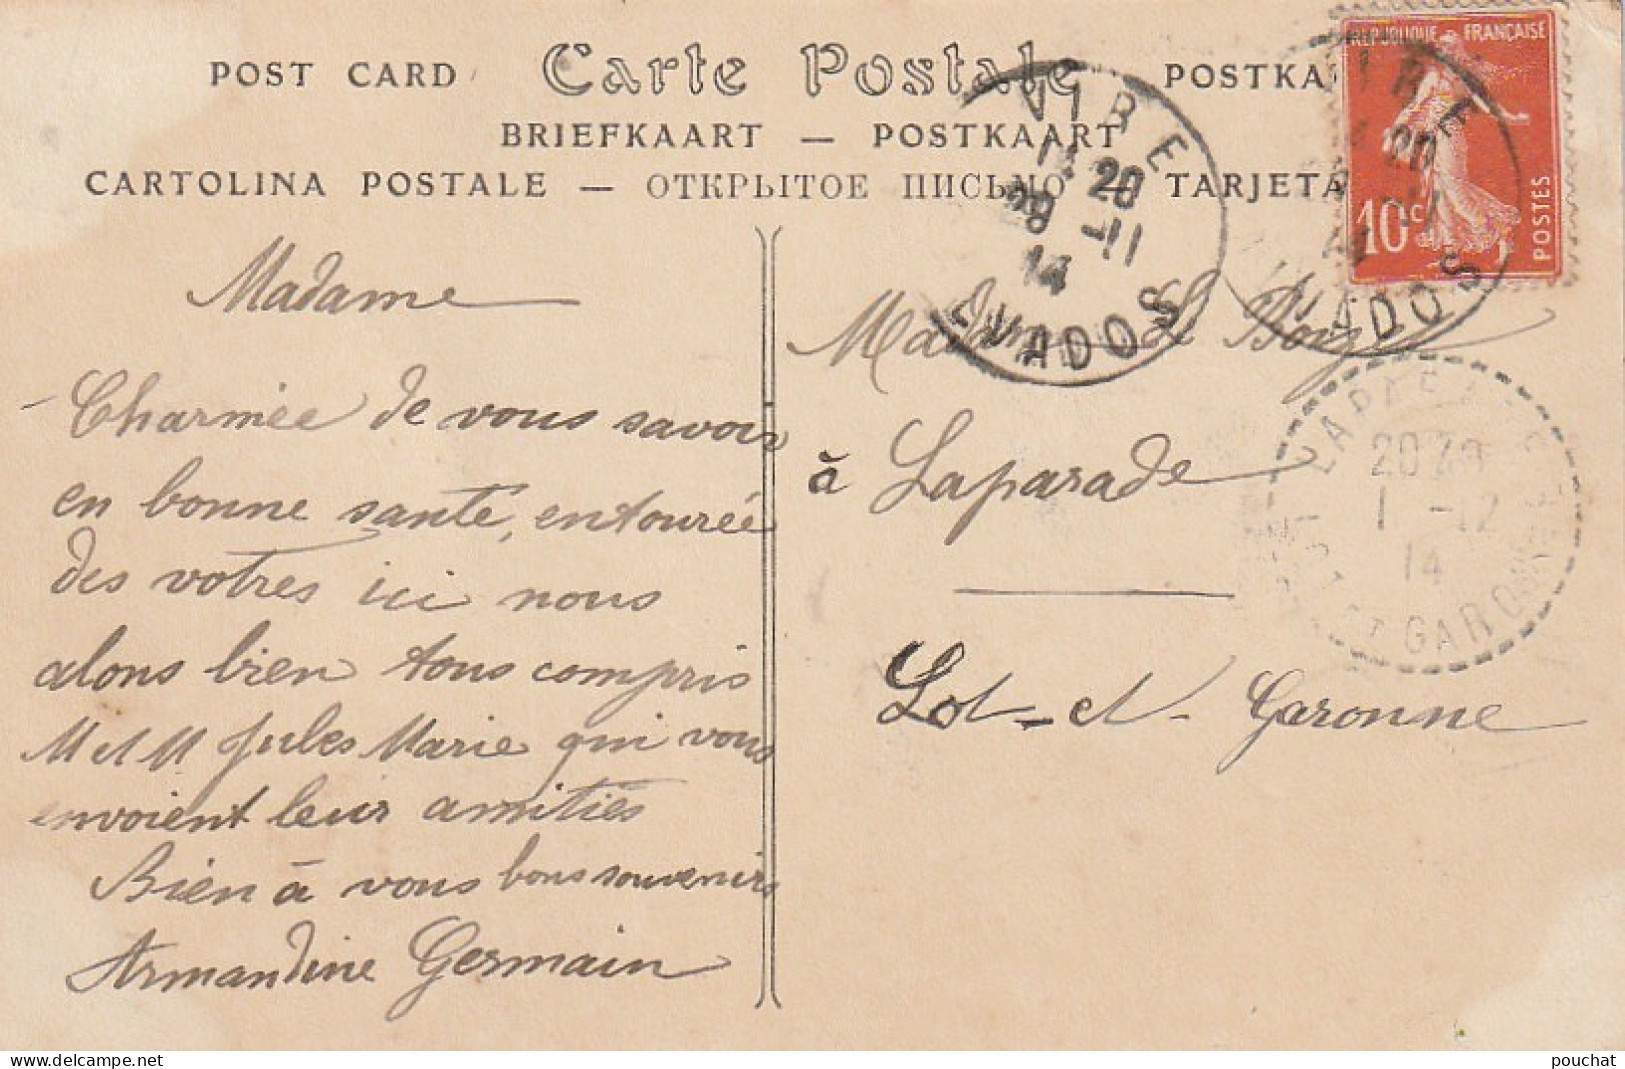 POST CARD Carte Postale POSTKA
BRIEFKAART — POSTKAART
CARTOLINA POSTALE — ОТКРЫТОЕ ПИСЬМО — TARJETA
REPUBLIQUE FRANÇAISE
10c POSTES
VIRE
14 20
29 -11
14
CALVADOS
VIRE
20
-11
14
VADOS
Madame
Charmée de vous savoir
en bonne santé, entourée
des votres ici nous
alons bien tous compris
M et M Jules Marie qui vous
envoient leur amitiés
Bien à vous bons souvenirs
Armandine Germain
Madame Le
à Laparade
Lot-et-Garonne
20 20
1 -12
14
LOT ET GARONNE
pouchat
www.delcampe.net